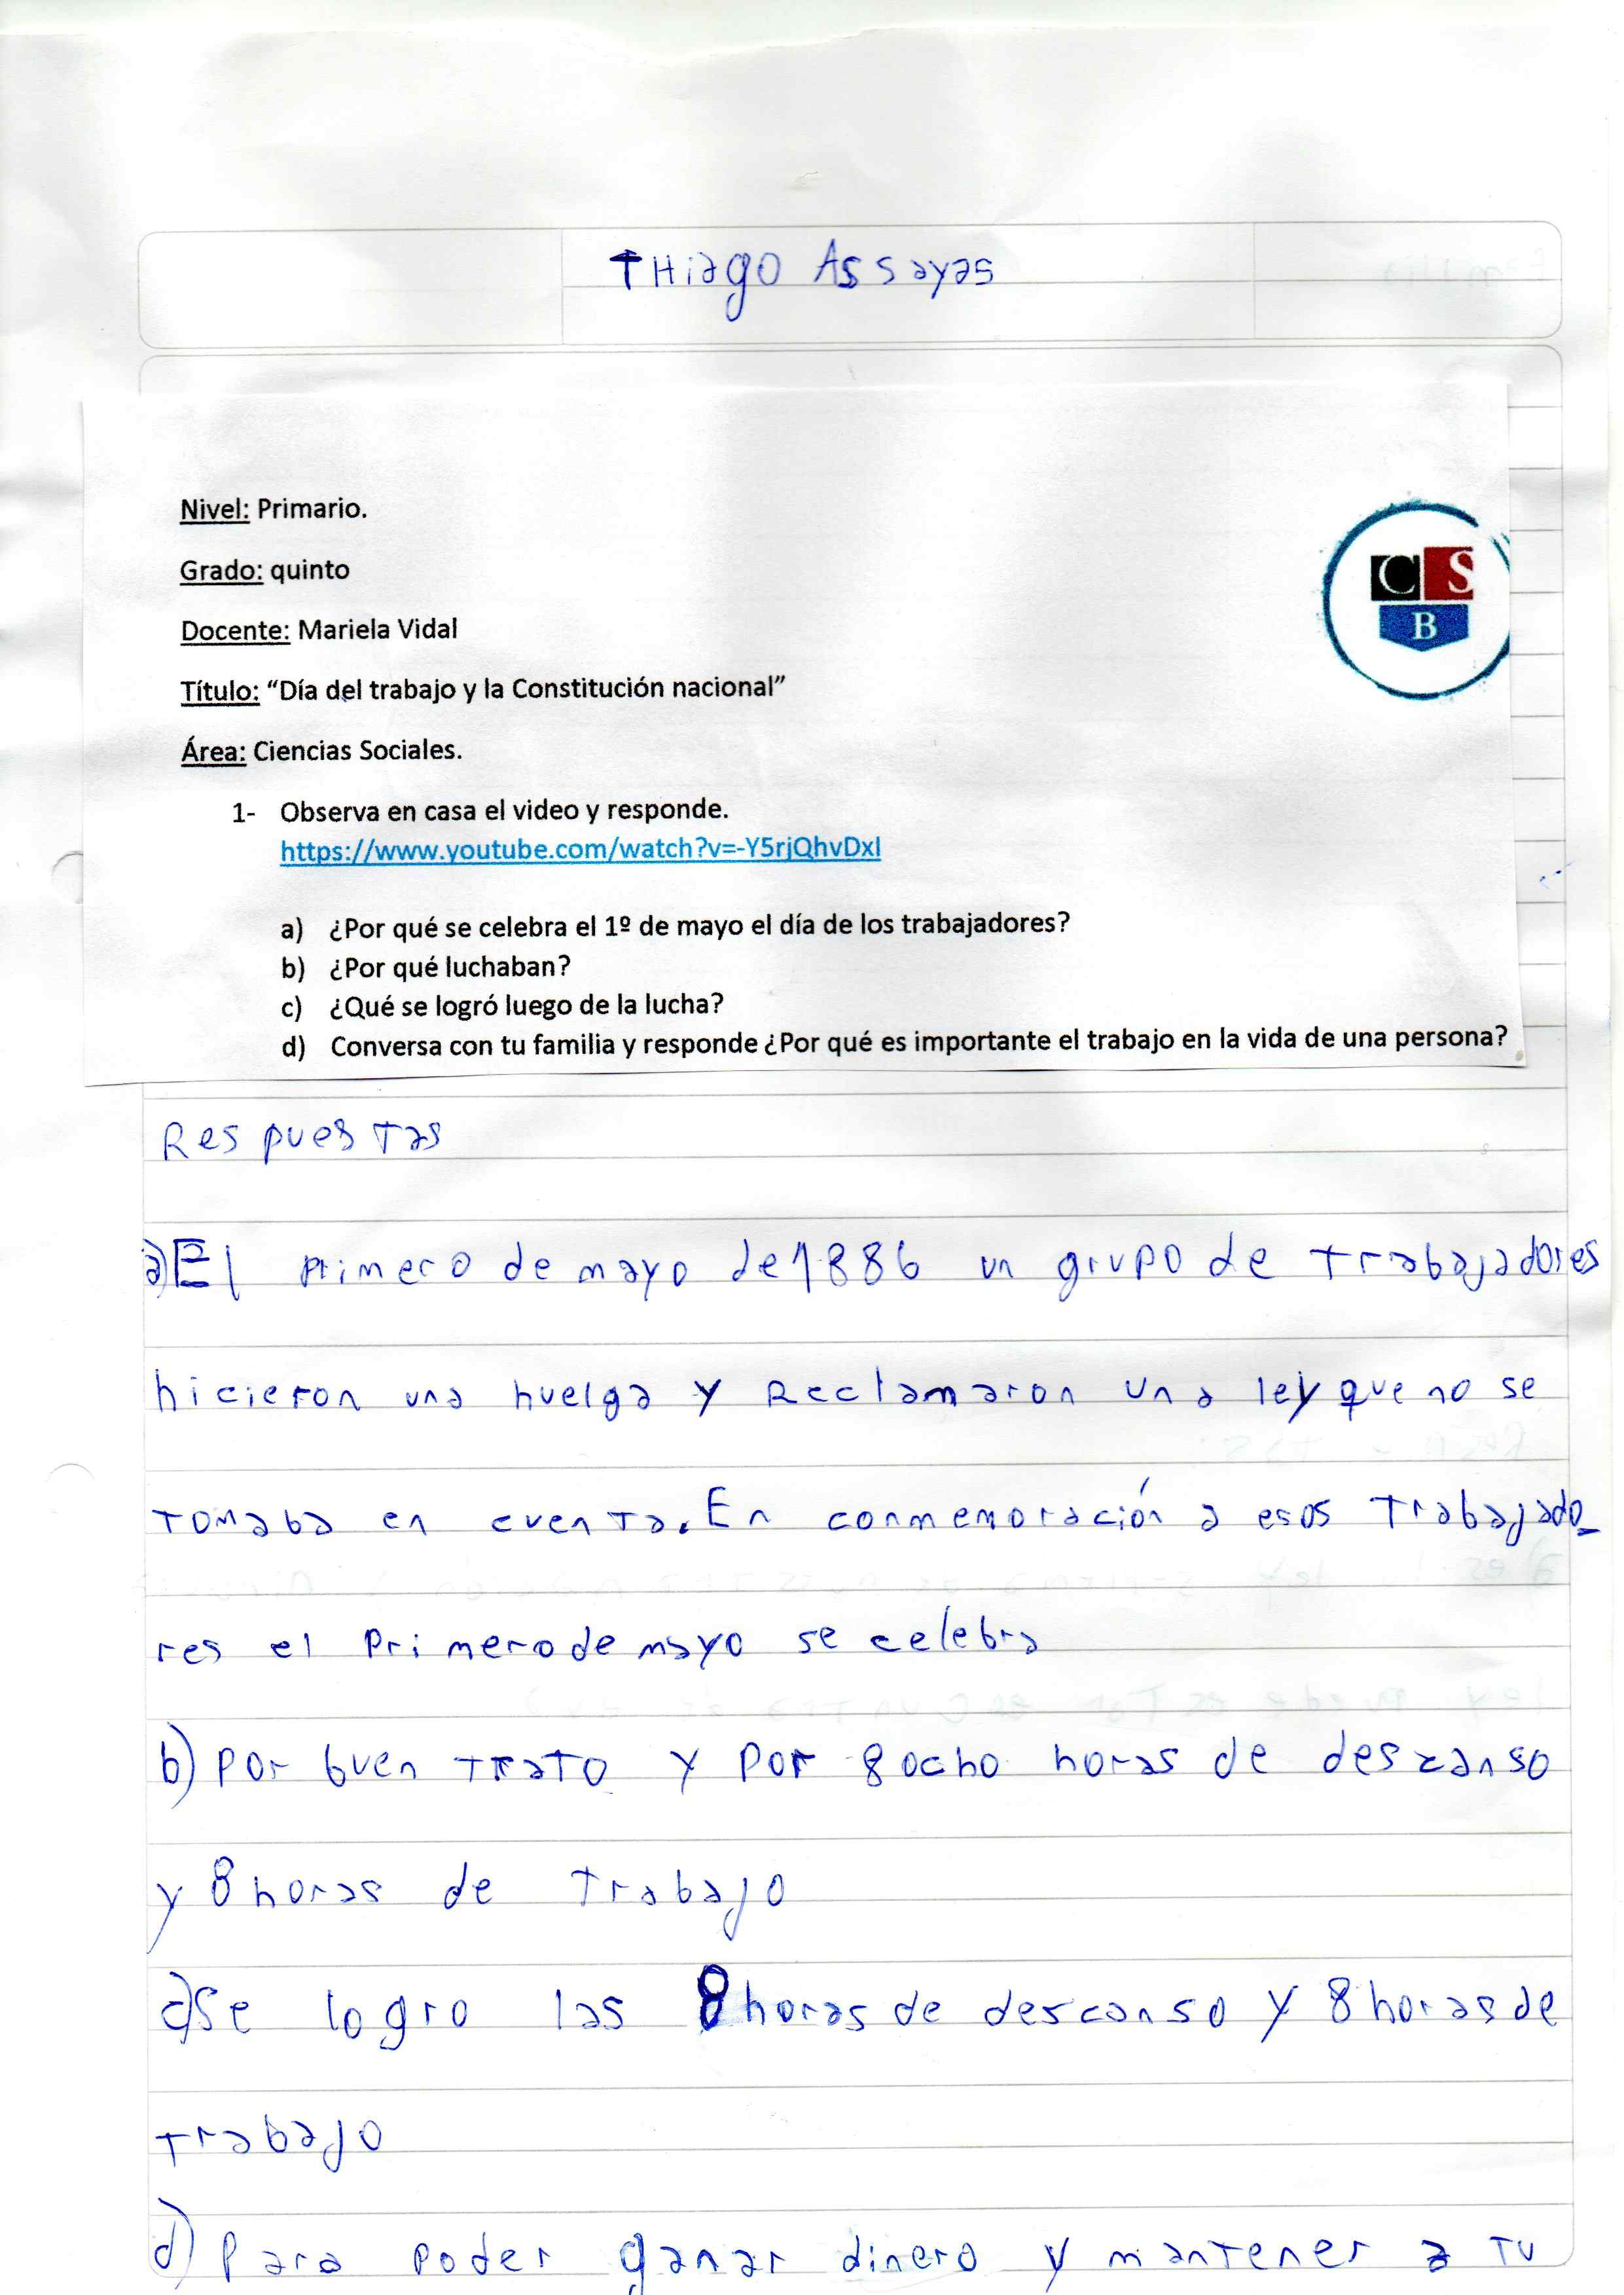 THiago Assayas
Nivel: Primario.
Grado: quinto
Docente: Mariela Vidal
Título: “Día del trabajo y la Constitución nacional”
Área: Ciencias Sociales.
C S
B
1- Observa en casa el video y responde.
https://www.youtube.com/watch?v=-Y5rjQhvDxI
a) ¿Por qué se celebra el 1º de mayo el día de los trabajadores?
b) ¿Por qué luchaban?
c) ¿Qué se logró luego de la lucha?
d) Conversa con tu familia y responde ¿Por qué es importante el trabajo en la vida de una persona?
Respuestas
a) El primero de mayo de 1886 un grupo de trabajadores
hicieron una huelga y Reclamaron una ley que no se
tomaba en cuenta. En conmemoración a esos trabajado_
res el primero de mayo se celebra
b) por buen trato y por 8 ocho horas de descanso
y 8 horas de trabajo
c) Se logro las 8 horas de descanso y 8 horas de
trabajo
d) Para poder ganar dinero y mantener a tu